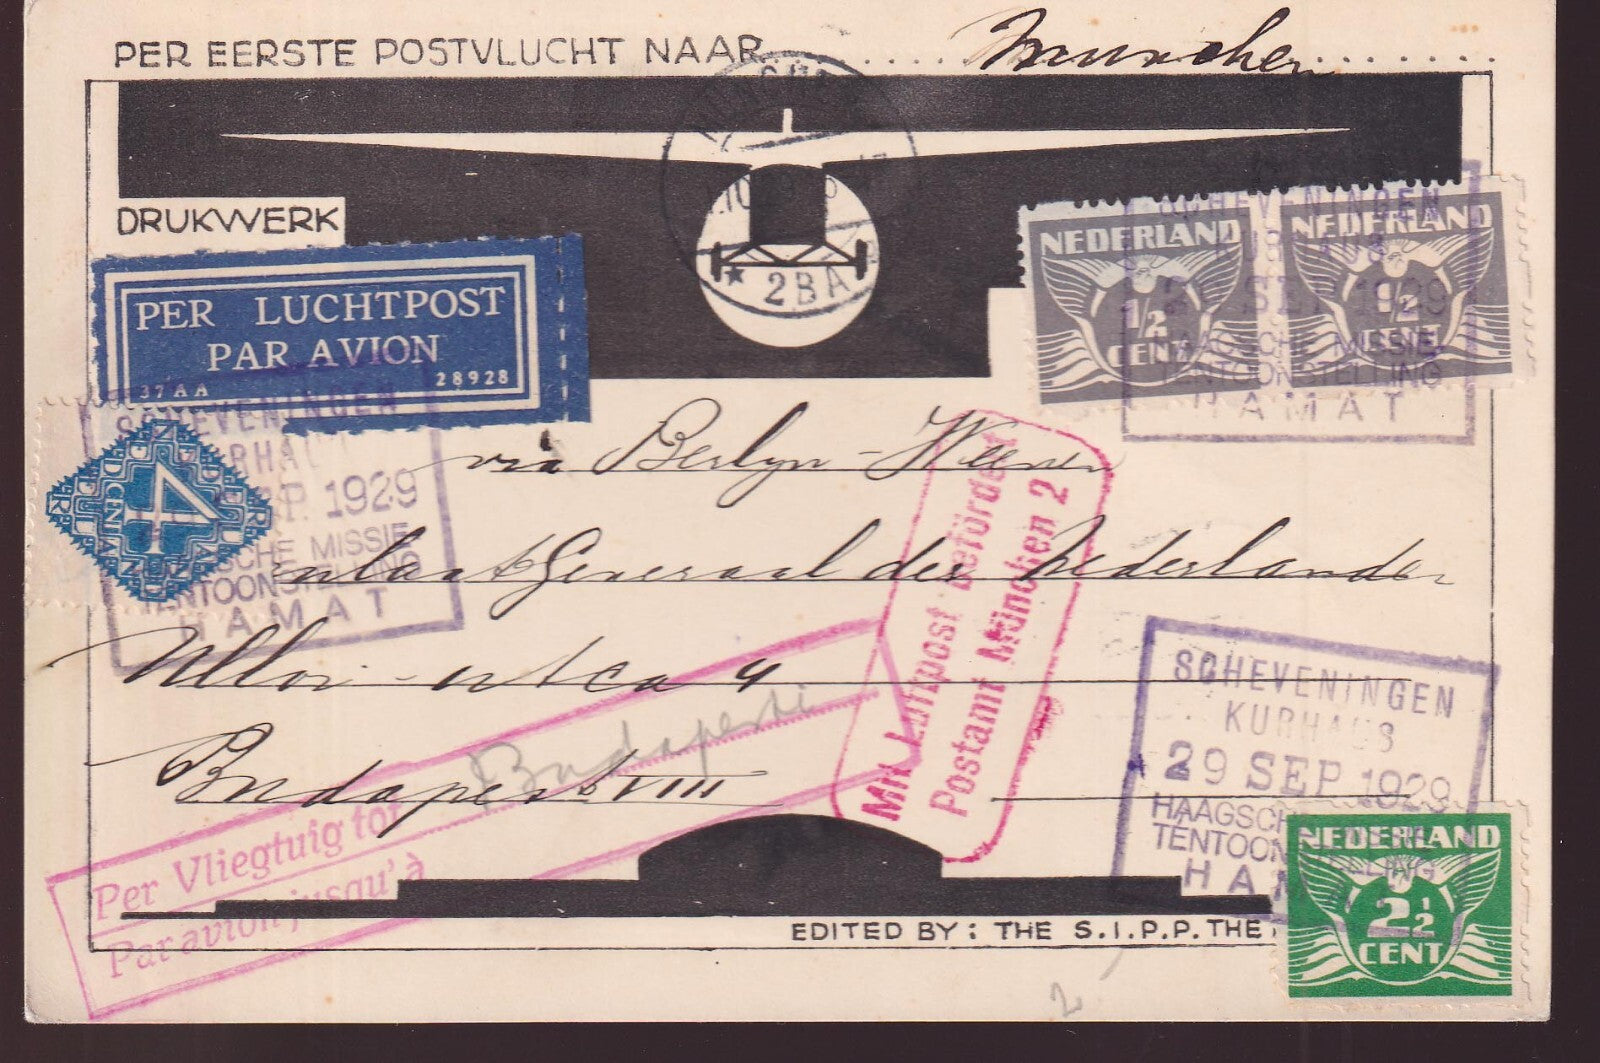 PER EERSTE POSTVLUCHT NAAR München
DRUKWERK
PER LUCHTPOST
PAR AVION
37AA 28928
NEDERLAND
1/2
CENT
NEDERLAND
1/2
CENT
SCHEVENINGEN
KURHAUS
SEP 1929
HAAGSCHE MISSIE
TENTOONSTELLING
HAMAT
2BA
SCHEVENINGEN
SEP. 1929
MISSIE
TENTOONSTELLING
HAMAT
4
CENT
via Berlyn - Weenen
Generaal der Nederlanden
Ulloi-utca 4
Budapest VIII
Mit Luftpost befördert
Postamt München 2
Per Vliegtuig tot Budapest
Par avion jusqu'à
SCHEVENINGEN
KURHAUS
29 SEP 1929
HAAGSCHE
TENTOONSTELLING
HAM
NEDERLAND
2 1/2
CENT
EDITED BY: THE S.I.P.P. THE
2